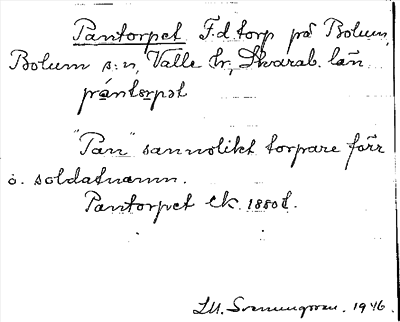 Pantorpet F.d. torp på Bolum,
Bolum s:n, Valle hr, Skarab. län
pántorpət
"Pan" sannolikt torpare förr
o. soldatnamn.
Pantorpet ek. 1880t.
Svenungsson. 1946.